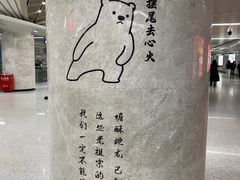 摆尾去心火
嘬酥地龙 已
这些老祖宗的
我们一定不能